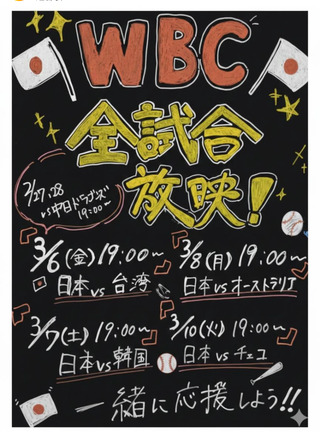 WBC
全試合
放映!
2/27,28
vs中日ドラゴンズ
19:00
3/6(金)19:00~
日本vs台湾
3/8(月)19:00~
日本vsオーストラリア
3/7(土)19:00~
日本vs韓国
3/10(火)19:00~
日本vsチェコ
一緒に応援しよう!!